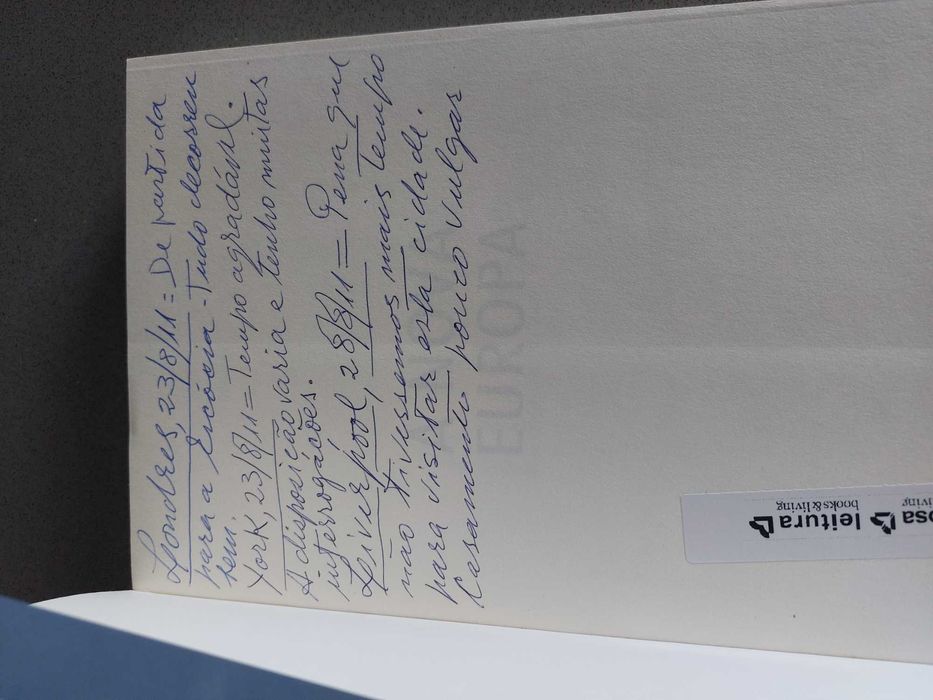 Londres, 23/8/11 = De partida
para a Escócia - Tudo decorreu
bem.
York, 23/8/11 = Tempo agradável.
A disposição varia e tenho muitas
interrogações.
Leiverpool, 28/8/11 = Pena que
não tivessemos mais tempo
para visitar esta cidade.
Casamento pouco vulgar
EUROPA
leitura
books&living
osa
iving